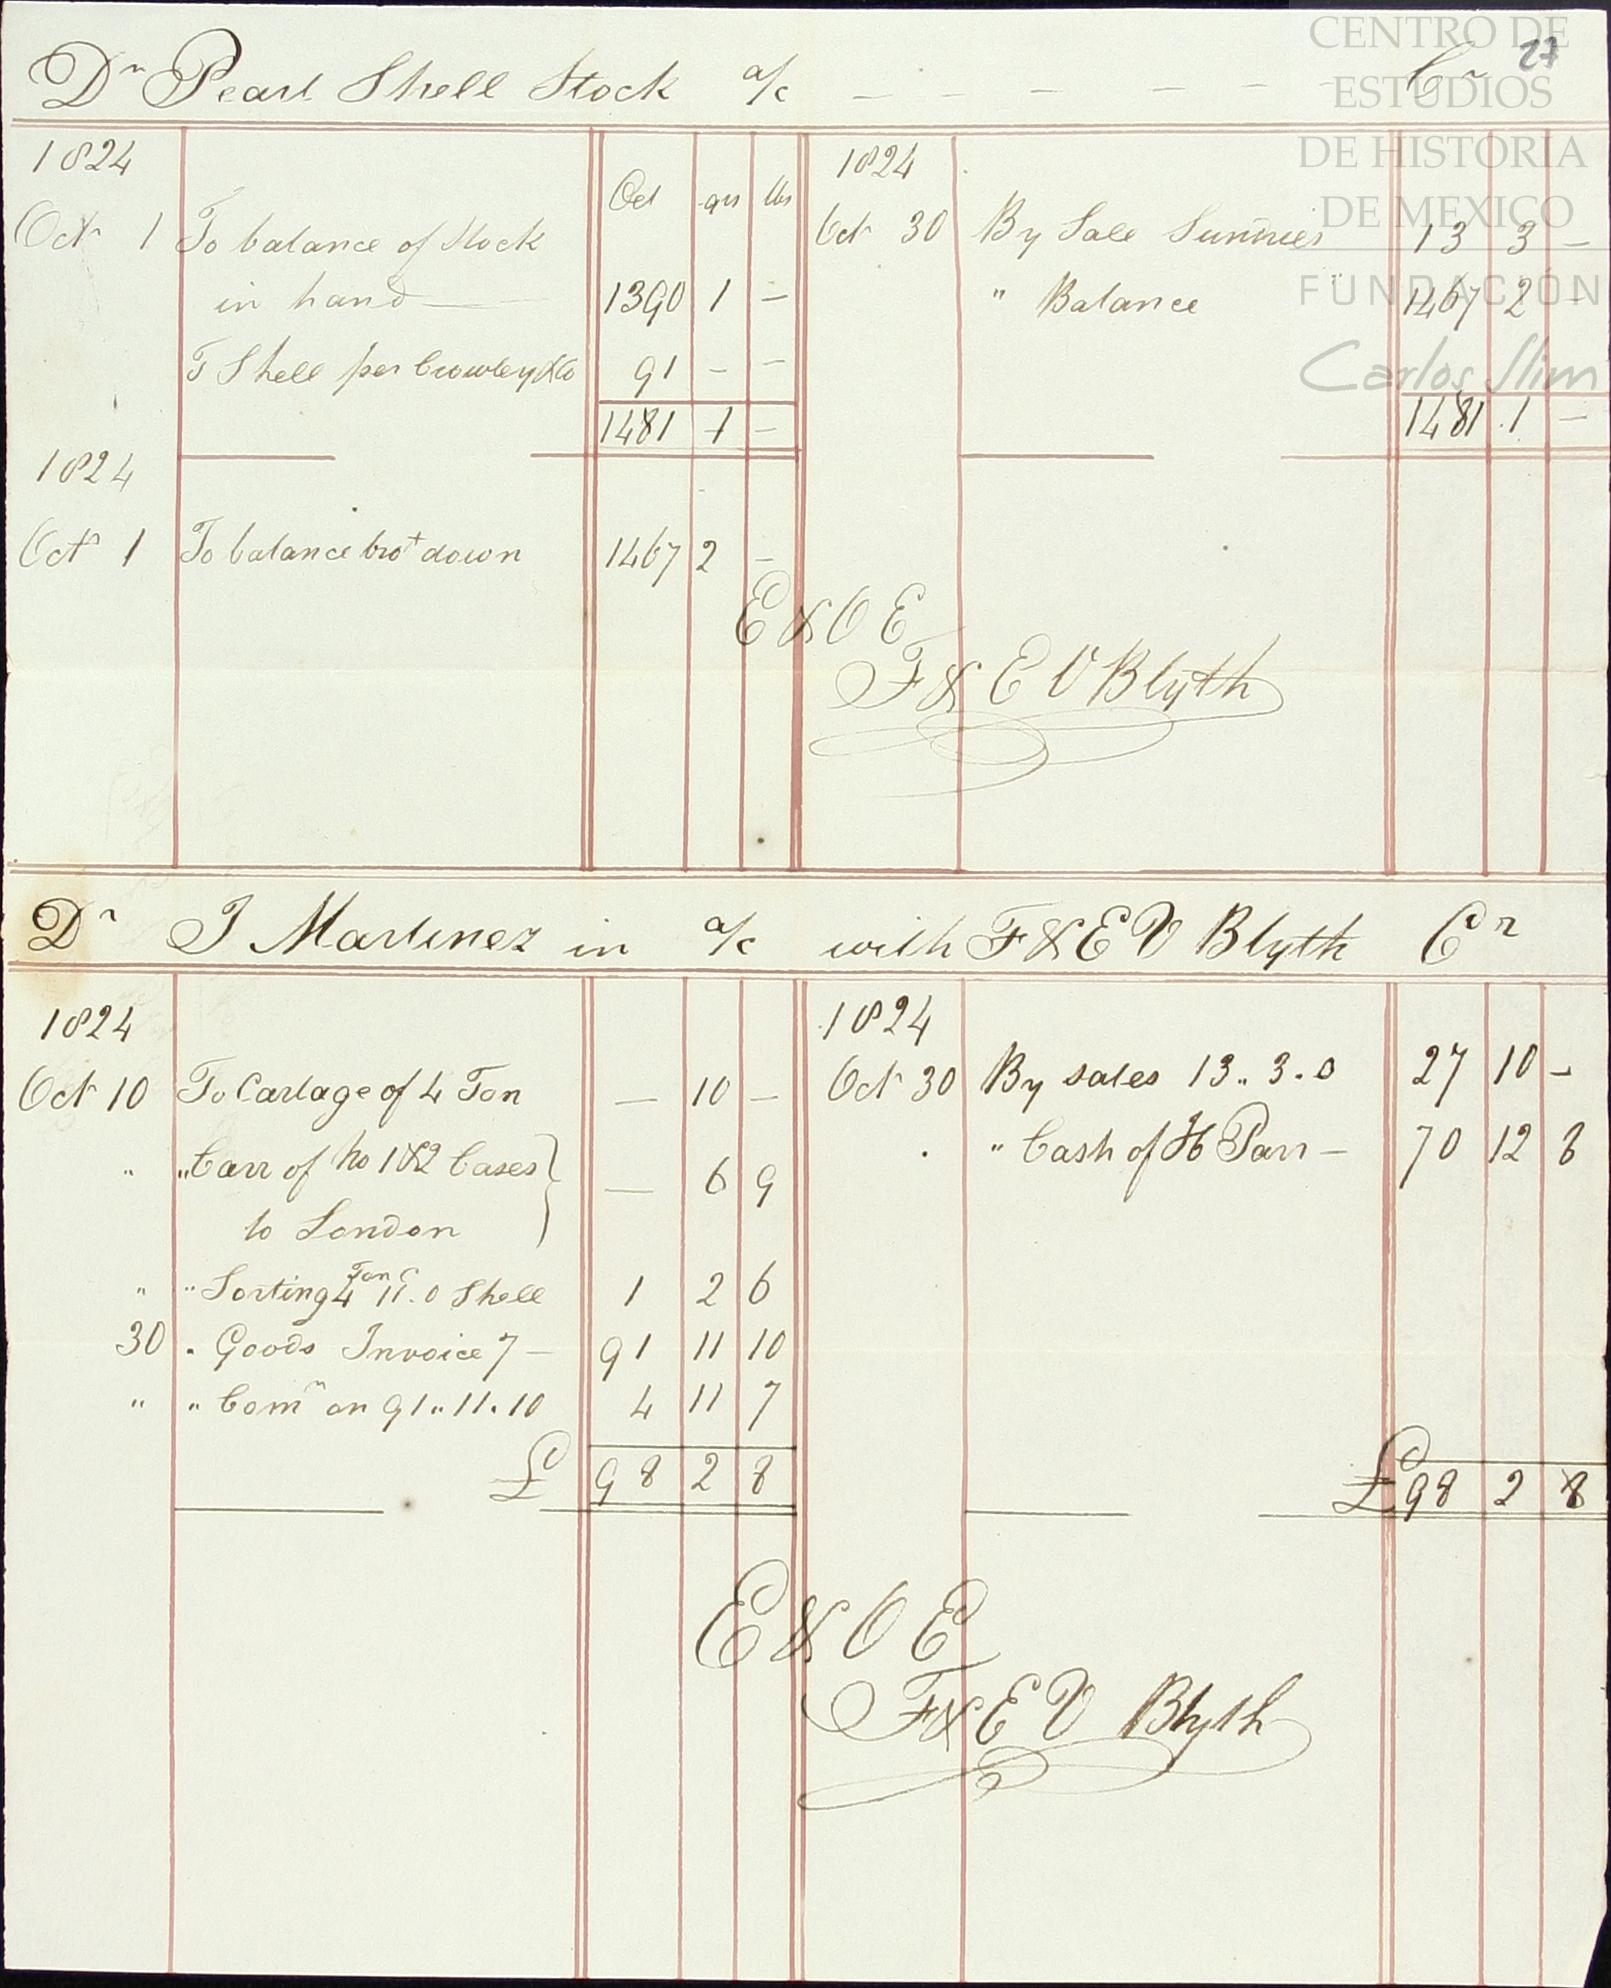 CENTRO DE
ESTUDIOS
DE HISTORIA
DE MEXICO
FUNDACIÓN
Carlos Slim
27
Dr Pearl Shell Stock a/c — — — — — — Cr
1824 1824
Cwt qrs lbs
Oct 1 To balance of Stock Oct 30 By Sale Sundries 13 3 —
in hand — 1390 1 — " Balance 1467 2 —
To Shell per Crowley & Co 91 — —
1481 1 — 1481 1 —
1824
Oct 1 To balance brot down 1467 2 —
E & O E
F & E V Blyth
Dr J Martinez in a/c with F & E V Blyth Cr
1824 1824
Oct 10 To Cartage of 4 Ton — 10 — Oct 30 By sales 13.. 3. 0 27 10 —
" " Carr of No 1 & 2 Cases — 6 9 " Cash of H Parr — 70 12 8
to London
" " Sorting 4 Ton 11 C. 0 Shell 1 2 6
30 " Goods Invoice 7 — 91 11 10
" " Comn on 91.. 11. 10 4 11 7
£ 98 2 8 £ 98 2 8
E & O E
F & E V Blyth